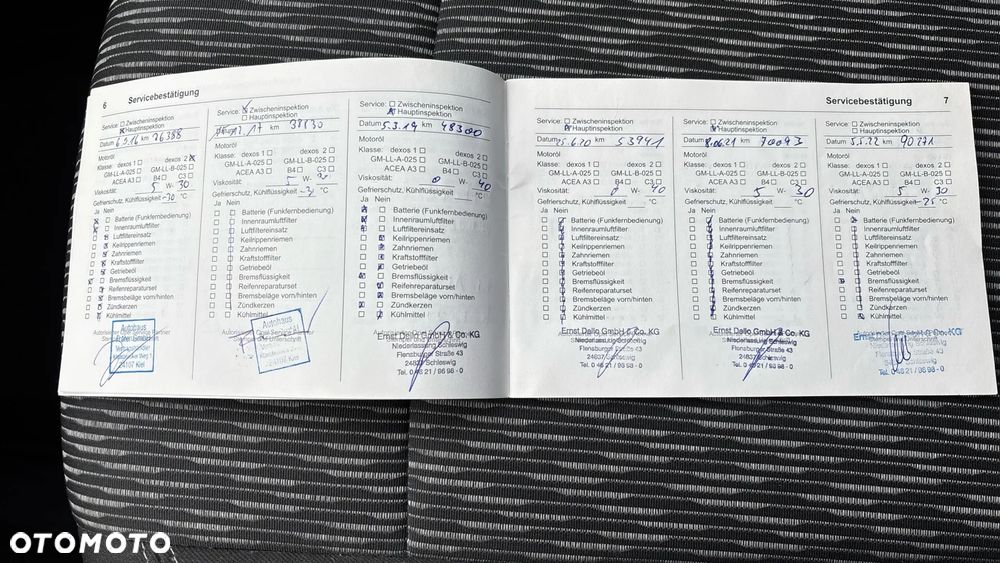 6 Servicebestätigung
Service: Zwischeninspektion
Hauptinspektion
Datum 6.5.16 km 26388
Motoröl
Klasse: dexos 1 dexos 2
GM-LL-A-025 GM-LL-B-025
ACEA A3 B4 C3
Viskosität: 5 W- 30
Gefrierschutz, Kühlflüssigkeit -30 °C
Ja Nein
Batterie (Funkfernbedienung)
Innenraumluftfilter
Luftfiltereinsatz
Keilrippenriemen
Zahnriemen
Kraftstofffilter
Getriebeöl
Bremsflüssigkeit
Reifenreparaturset
Bremsbeläge vorn/hinten
Zündkerzen
Kühlmittel
Autohaus
24107 Kiel
Service: Zwischeninspektion
Hauptinspektion
Datum 17 km
Motoröl
Klasse: dexos 1 dexos 2
GM-LL-A-025 GM-LL-B-025
ACEA A3 B4 C3
Viskosität: 5 W-
Gefrierschutz, Kühlflüssigkeit °C
Ja Nein
Batterie (Funkfernbedienung)
Innenraumluftfilter
Luftfiltereinsatz
Keilrippenriemen
Zahnriemen
Kraftstofffilter
Getriebeöl
Bremsflüssigkeit
Reifenreparaturset
Bremsbeläge vorn/hinten
Zündkerzen
Kühlmittel
Autohaus
24107 Kiel
Service: Zwischeninspektion
Hauptinspektion
Datum 5.3.19 km 48300
Motoröl
Klasse: dexos 1 dexos 2
GM-LL-A-025 GM-LL-B-025
ACEA A3 B4 C3
Viskosität: 0 W- 40
Gefrierschutz, Kühlflüssigkeit °C
Ja Nein
Batterie (Funkfernbedienung)
Innenraumluftfilter
Luftfiltereinsatz
Keilrippenriemen
Zahnriemen
Kraftstofffilter
Getriebeöl
Bremsflüssigkeit
Reifenreparaturset
Bremsbeläge vorn/hinten
Zündkerzen
Kühlmittel
Ernst Dello GmbH & Co. KG
Niederlassung Schleswig
Flensburger Straße 43
24837 Schleswig
Tel. 0 46 21 / 96 98 - 0
Servicebestätigung 7
Service: Zwischeninspektion
Hauptinspektion
Datum 25.6.20 km 53941
Motoröl
Klasse: dexos 1 dexos 2
GM-LL-A-025 GM-LL-B-025
ACEA A3 B4 C3
Viskosität: 0 W- 40
Gefrierschutz, Kühlflüssigkeit °C
Ja Nein
Batterie (Funkfernbedienung)
Innenraumluftfilter
Luftfiltereinsatz
Keilrippenriemen
Zahnriemen
Kraftstofffilter
Getriebeöl
Bremsflüssigkeit
Reifenreparaturset
Bremsbeläge vorn/hinten
Zündkerzen
Kühlmittel
Ernst Dello GmbH & Co. KG
Niederlassung Schleswig
Flensburger Straße 43
24837 Schleswig
Tel. 0 46 21 / 96 98 - 0
Service: Zwischeninspektion
Hauptinspektion
Datum 8.06.21 km 70093
Motoröl
Klasse: dexos 1 dexos 2
GM-LL-A-025 GM-LL-B-025
ACEA A3 B4 C3
Viskosität: 5 W- 30
Gefrierschutz, Kühlflüssigkeit °C
Ja Nein
Batterie (Funkfernbedienung)
Innenraumluftfilter
Luftfiltereinsatz
Keilrippenriemen
Zahnriemen
Kraftstofffilter
Getriebeöl
Bremsflüssigkeit
Reifenreparaturset
Bremsbeläge vorn/hinten
Zündkerzen
Kühlmittel
Ernst Dello GmbH & Co. KG
Niederlassung Schleswig
Flensburger Straße 43
24837 Schleswig
Tel. 0 46 21 / 96 98 - 0
Service: Zwischeninspektion
Hauptinspektion
Datum 5.5.22 km 90271
Motoröl
Klasse: dexos 1 dexos 2
GM-LL-A-025 GM-LL-B-025
ACEA A3 B4 C3
Viskosität: 5 W- 30
Gefrierschutz, Kühlflüssigkeit -25 °C
Ja Nein
Batterie (Funkfernbedienung)
Innenraumluftfilter
Luftfiltereinsatz
Keilrippenriemen
Zahnriemen
Kraftstofffilter
Getriebeöl
Bremsflüssigkeit
Reifenreparaturset
Bremsbeläge vorn/hinten
Zündkerzen
Kühlmittel
Flensburger Straße 43
24837 Schleswig
Tel. 0 46 21 / 96 98 - 0
OTOMOTO